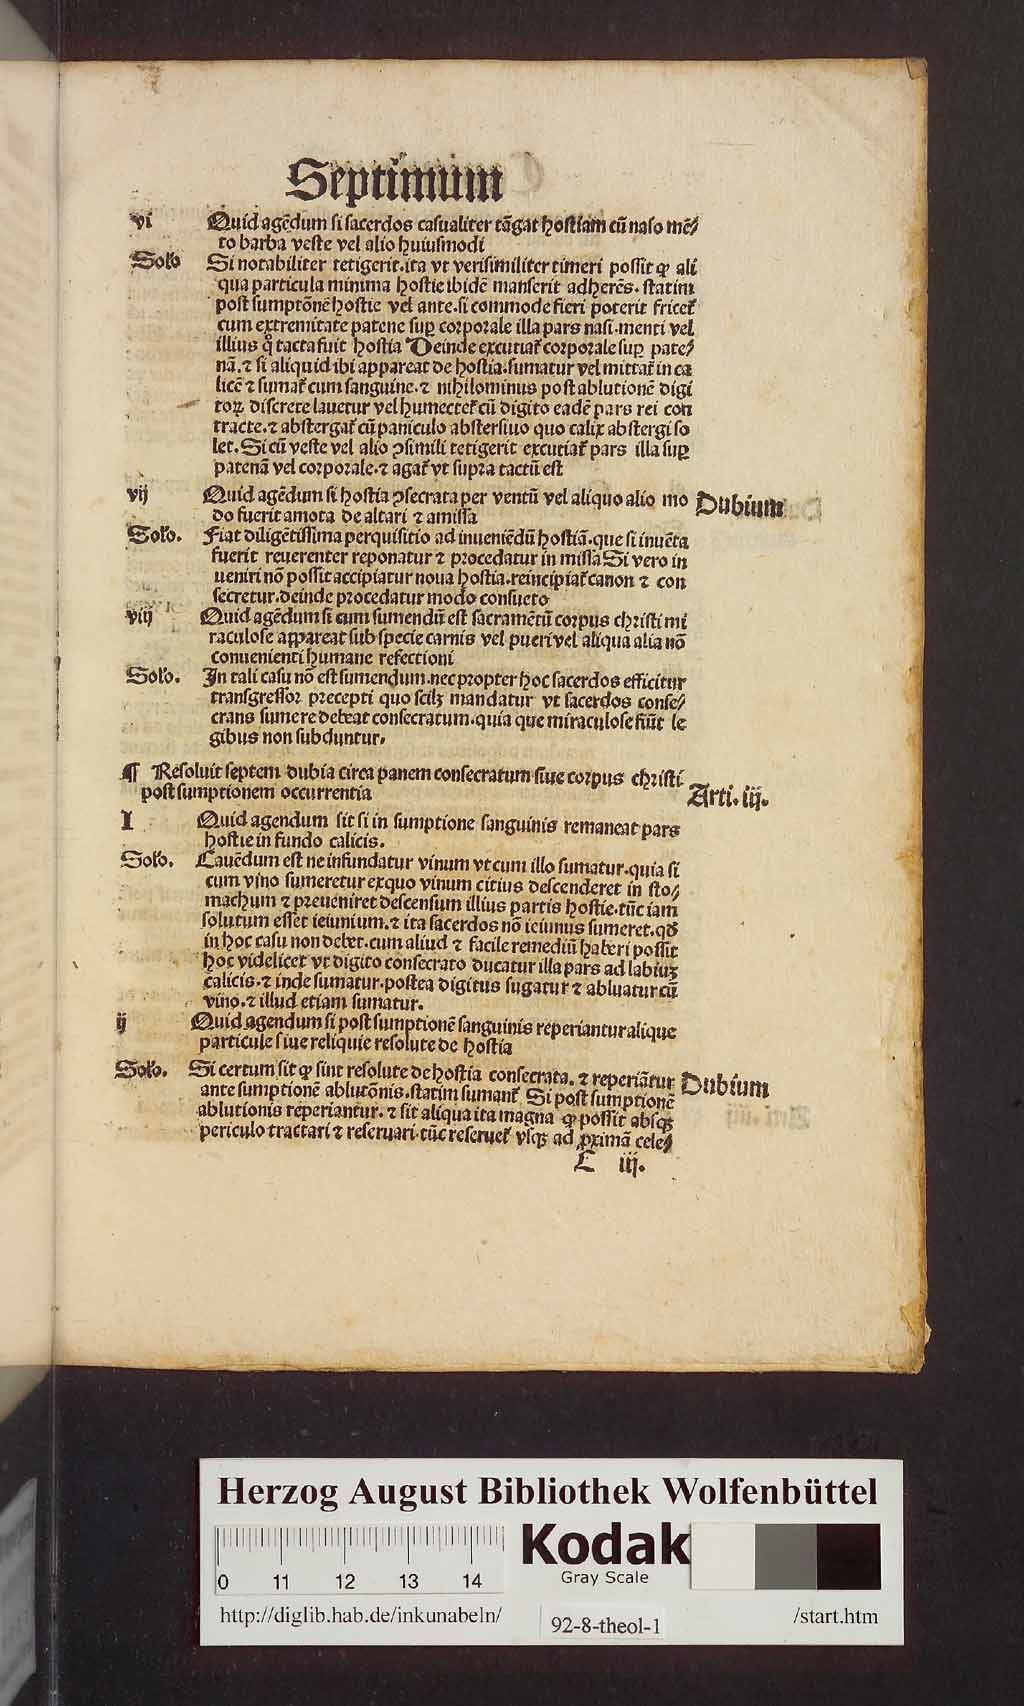 Septimum
vi Quid agēdum si sacerdos casualiter tāgat hostiam cū naso mē/
to barba veste vel alio huiusmodi
Solo Si notabiliter tetigerit.ita vt verisimiliter timeri possit ꝙ ali
qua particula minima hostie ibidē manserit adherēs. statim
post sumptōnē hostie vel ante.si commode fieri poterit fricet᷑
cum extremitate patene suꝑ corporale illa pars nasi.menti vel
illius q̄ tacta fuit hostia Deinde excutiat᷑ corporale suꝑ pate/
nā.⁊ si aliquid ibi appareat de hostia.sumatur vel mittat᷑ in ca
licē ⁊ sumat᷑ cum sanguine.⁊ nihilominus post ablutionē digi
toꝝ discrete lauetur vel humectet᷑ cū digito eadē pars rei con
tracte.⁊ abstergat᷑ cū paniculo abstersiuo quo calix abstergi so
let.Si cū veste vel alio ꝯsimili tetigerit excutiat᷑ pars illa suꝑ
patenā vel corporale.⁊ agat᷑ vt supra tactū est
vij Quid agēdum si hostia ꝯsecrata per ventū vel aliquo alio mo
do fuerit amota de altari ⁊ amissa
Dubium
Solo. Fiat diligētissima perquisitio ad inueniēdū hostiā.que si inuēta
fuerit reuerenter reponatur ⁊ procedatur in missa Si vero in
ueniri nō possit accipiatur noua hostia.reincipiat᷑ canon ⁊ con
secretur.deinde procedatur modo consueto
viij Quid agēdum si cum sumendū est sacramētū corpus christi mi
raculose appareat sub specie carnis vel pueri vel aliqua alia nō
conuenienti humane refectioni
Solo. In tali casu nō est sumendum.nec propter hoc sacerdos efficitur
transgressor precepti quo scilꝫ mandatur vt sacerdos conse/
crans sumere debeat consecratum.quia que miraculose fiūt le
gibus non subduntur.
¶ Resoluit septem dubia circa panem consecratum siue corpus christi
post sumptionem occurrentia
Arti. iij.
I Quid agendum sit si in sumptione sanguinis remaneat pars
hostie in fundo calicis.
Solo. Cauēdum est ne infundatur vinum vt cum illo sumatur.quia si
cum vino sumeretur exquo vinum citius descenderet in sto/
machum ⁊ preueniret descensum illius partis hostie.tūc iam
solutum esset ieiunium.⁊ ita sacerdos nō ieiunus sumeret.qđ
in hoc casu non debet.cum aliud ⁊ facile remediū haberi possit
hoc videlicet vt digito consecrato ducatur illa pars ad labiuꝫ
calicis.⁊ inde sumatur.postea digitus sugatur ⁊ abluatur cū
vino.⁊ illud etiam sumatur.
ij Quid agendum si post sumptionē sanguinis reperiantur alique
particule siue reliquie resolute de hostia
Solo. Si certum sit ꝙ sint resolute de hostia consecrata.⁊ reperiātur
ante sumptionē ablutōnis.statim sumant᷑ Si post sumptionē
ablutionis reperiantur.⁊ sit aliqua ita magna ꝙ possit absqꝫ
periculo tractari ⁊ reseruari.tūc reseruet᷑ vsqꝫ ad ꝓximā cele/
Dubium
C iij.
Herzog August Bibliothek Wolfenbüttel
0 11 12 13 14
Kodak
Gray Scale
http://diglib.hab.de/inkunabeln/
92-8-theol-1
/start.htm